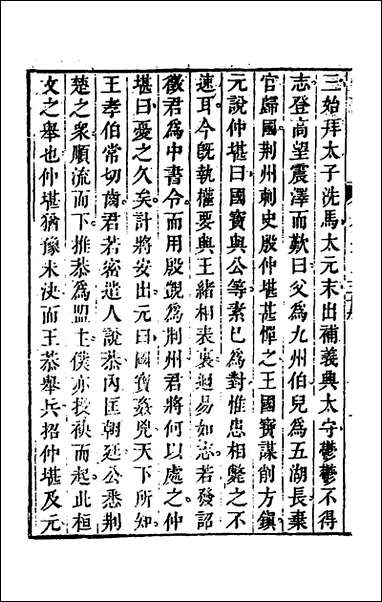 三始拜太子洗馬太元末出補義興太守鬱鬱不得
志登高望震澤而歎曰父為九州伯兒為五湖長棄
官歸國荆州刺史殷仲堪甚憚之王國寶謀削方鎮
元說仲堪曰國寶與公等素已為對惟患相斃之不
速耳今旣執權要與王緒相表裏迴易如志若發詔
徵君為中書令而用殷覬為荆州君將何以處之仲
堪曰憂之久矣計將安出元曰國寶姦兇天下所知
王孝伯常切齒君若密遣人說恭內匡朝廷公悉荆
楚之衆順流而下推恭為盟主僕亦投袂而起此桓
文之舉也仲堪猶豫未決而王恭舉兵招仲堪及元